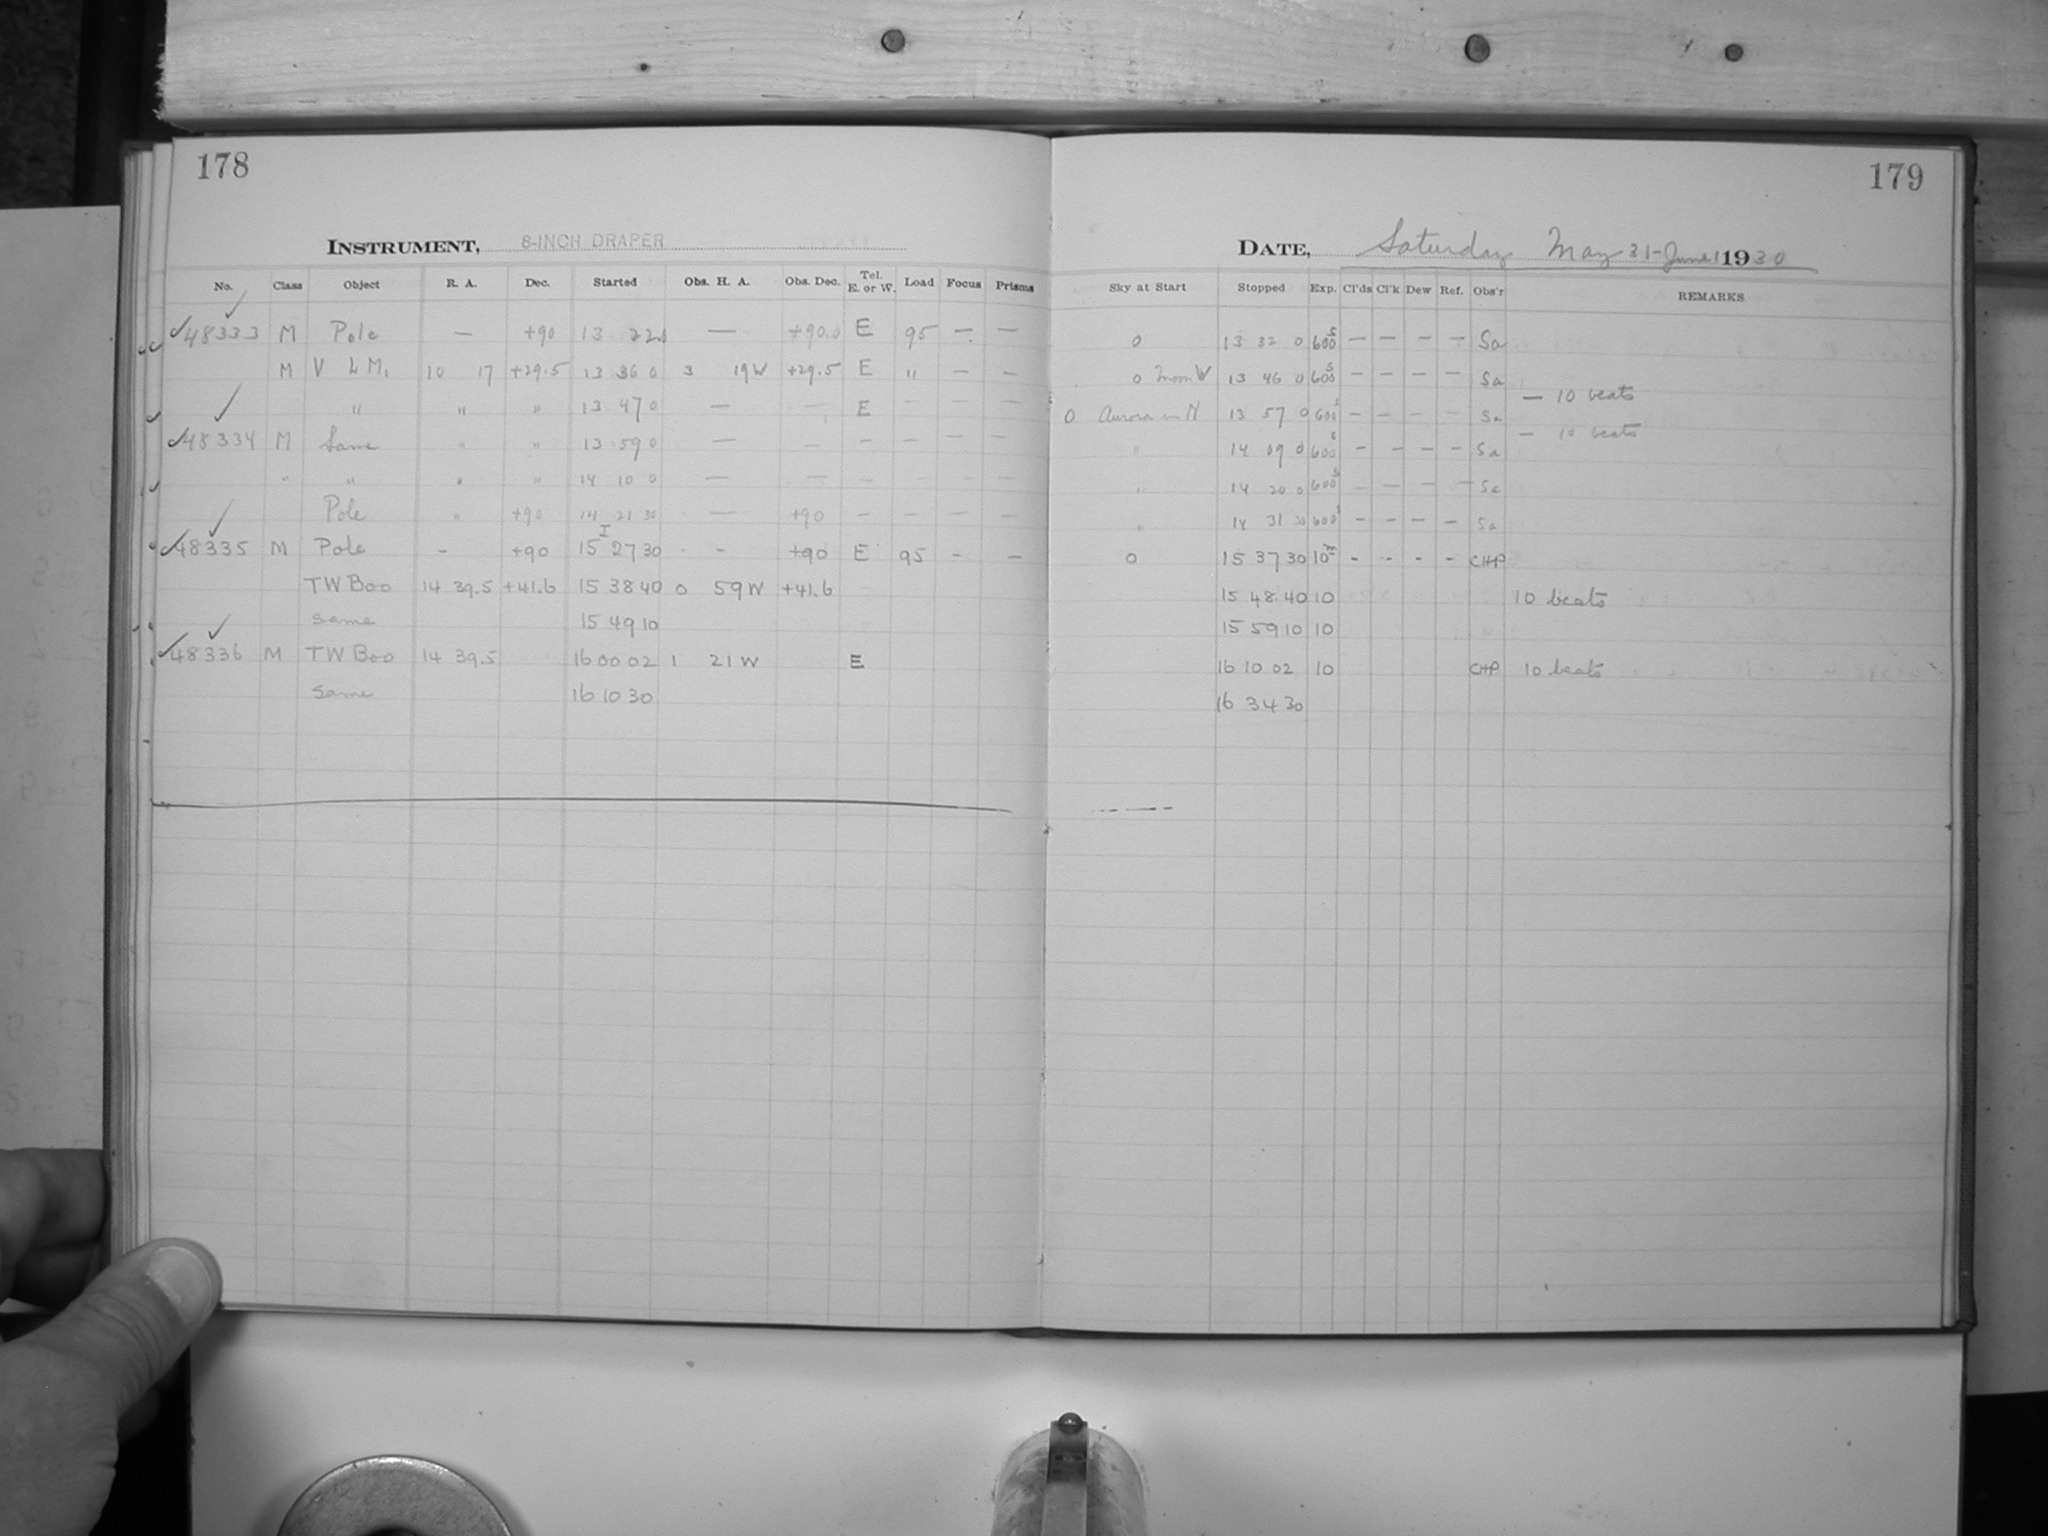 178
179
INSTRUMENT, 8-INCH DRAPER
DATE, Saturday May 31-June 1 1930
No. Class Object R. A. Dec. Started Obs. H. A. Obs. Dec. Tel. E. or W. Load Focus Prisms Sky at Start Stopped Exp. Cl'ds Cl'k Dew Ref. Obs'r REMARKS
✓48333 M Pole — +90 13 22 — +90.0 E 95 — — 0 13 32 0 600s — — — — Sa
M V L M. 10 17 +29.5 13 36 0 3 19W +29.5 E " — — 0 Moon W 13 46 0 600s — — — — Sa
— 10 beats
" " " 13 47 0 — — E — — 0 Aurora in N 13 57 0 600s — — — — Sa
— 10 beats
✓48334 M Same " " 13 59 0 — — — — — — " 14 09 0 600s — — — — Sa
" " " " 14 10 0 — — — — — — " 14 20 0 600s — — — — Sa
Pole " +90 14 21 30 — +90 — — — — " 14 31 30 600s — — — — Sa
✓48335 M Pole - +90 15 27 30 - +90 E 95 - - 0 15 37 30 10m - - - - CHP
TW Boo 14 39.5 +41.6 15 38 40 0 59W +41.6 15 48 40 10 10 beats
Same 15 49 10 15 59 10 10
✓48336 M TW Boo 14 39.5 16 00 02 1 21W E 16 10 02 10 CHP 10 beats
Same 16 10 30 16 34 30